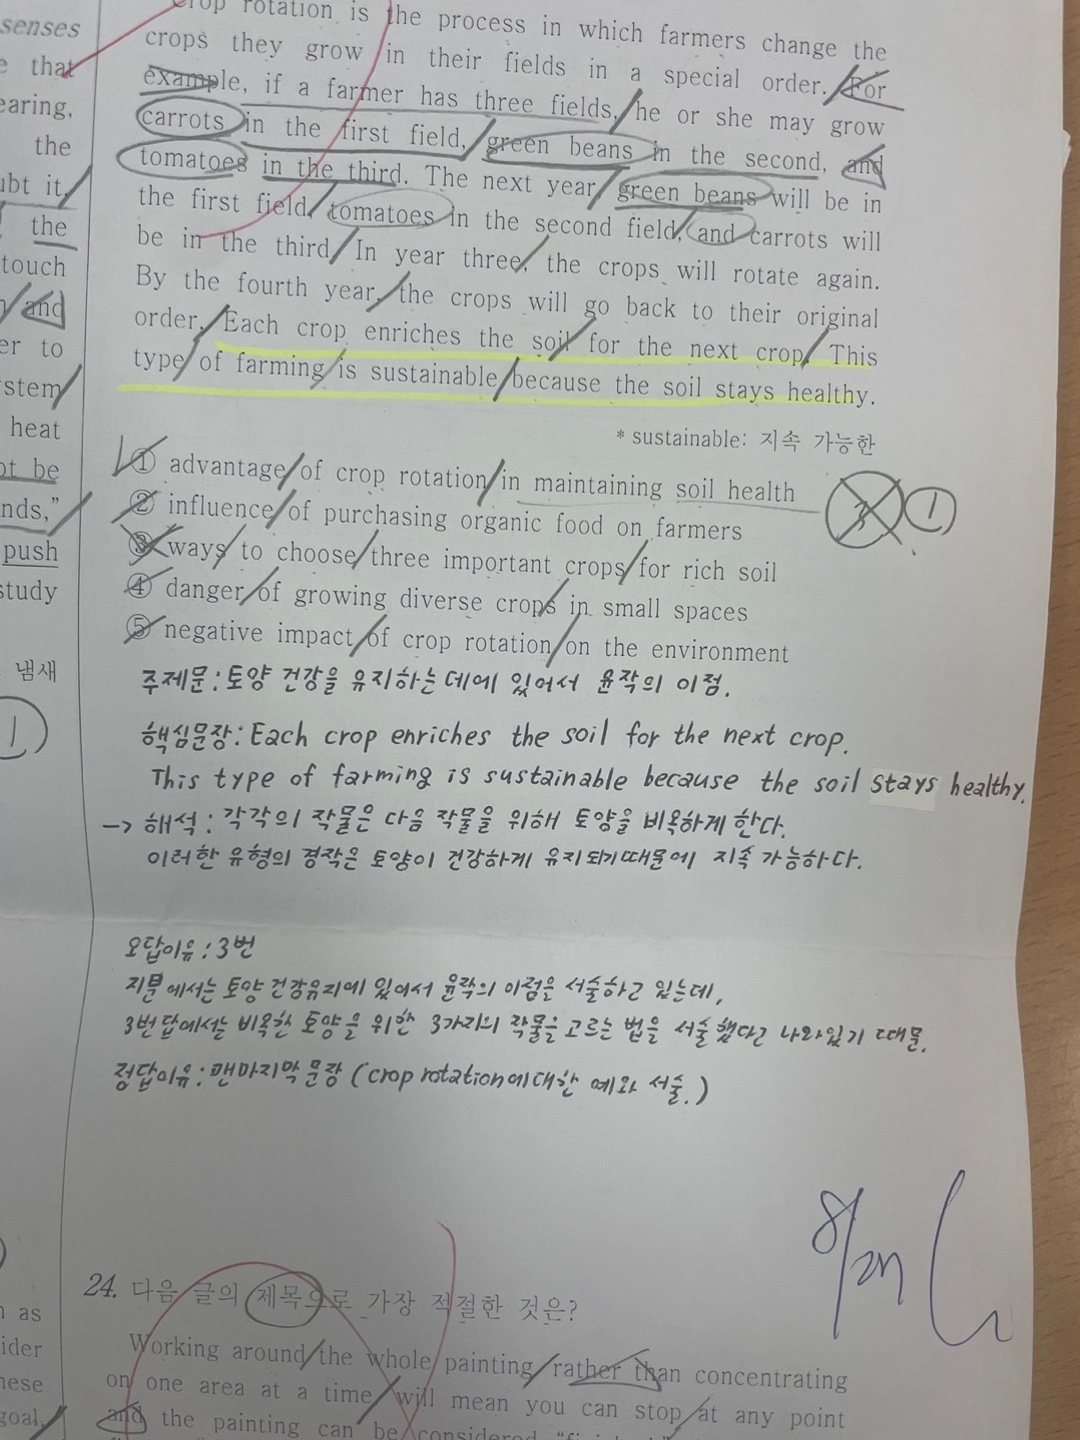 senses
that
earing,
the
ubt it,
the
touch
and
er to
stem
heat
ot be
nds,"
push
study
냄새
1
as
ider
hese
goal,
Crop rotation is the process in which farmers change the
crops they grow in their fields in a special order. For
example, if a farmer has three fields, he or she may grow
carrots in the first field, green beans in the second, and
tomatoes in the third. The next year, green beans will be in
the first field, tomatoes in the second field, and carrots will
be in the third. In year three, the crops will rotate again.
By the fourth year, the crops will go back to their original
order. Each crop enriches the soil for the next crop. This
type of farming is sustainable because the soil stays healthy.
* sustainable: 지속 가능한
① advantage of crop rotation in maintaining soil health
② influence of purchasing organic food on farmers
③ ways to choose three important crops for rich soil
④ danger of growing diverse crops in small spaces
⑤ negative impact of crop rotation on the environment
3 1
주제문: 토양 건강을 유지하는 데에 있어서 윤작의 이점.
핵심문장: Each crop enriches the soil for the next crop.
This type of farming is sustainable because the soil stays healthy.
-> 해석: 각각의 작물은 다음 작물을 위해 토양을 비옥하게 한다.
이러한 유형의 경작은 토양이 건강하게 유지되기때문에 지속 가능하다.
오답이유: 3번
지문에서는 토양 건강유지에 있어서 윤작의 이점을 서술하고 있는데,
3번답에서는 비옥한 토양을 위한 3가지의 작물을 고르는 법을 서술했다고 나와있기 때문.
정답이유: 맨마지막 문장 (crop rotation에 대한 예와 서술.)
24. 다음 글의 제목으로 가장 적절한 것은?
Working around the whole painting, rather than concentrating
on one area at a time, will mean you can stop at any point
and the painting can be considered "finished."